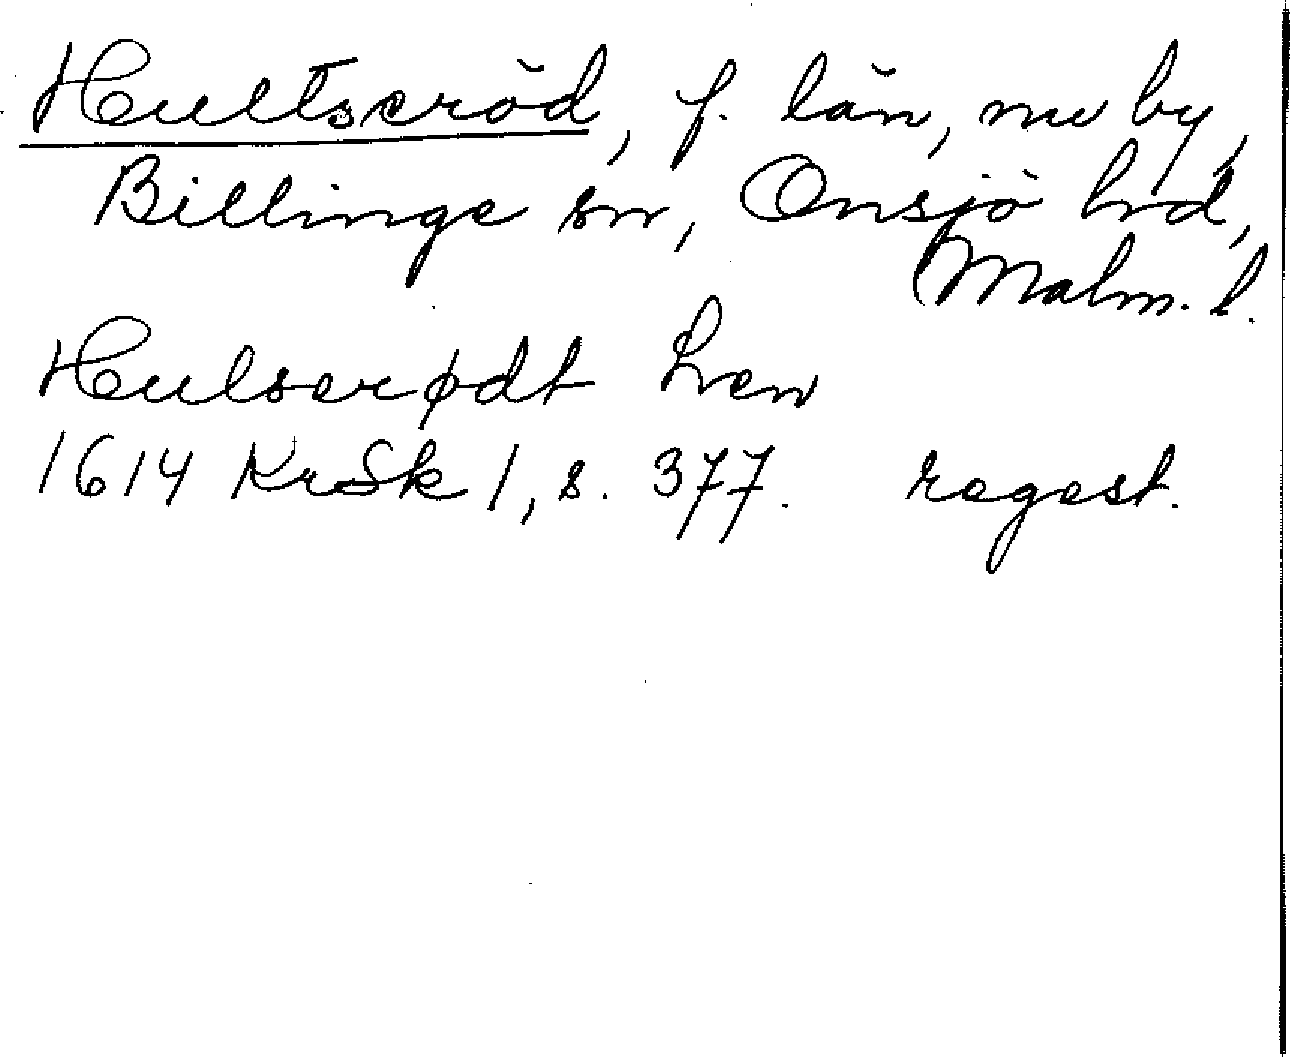 Hultseröd, f. län, nu by,
Billinge sn, Onsjö hrd,
Malm. l.
Hulserødt Len
1614 KrSk 1, s. 377. regest.